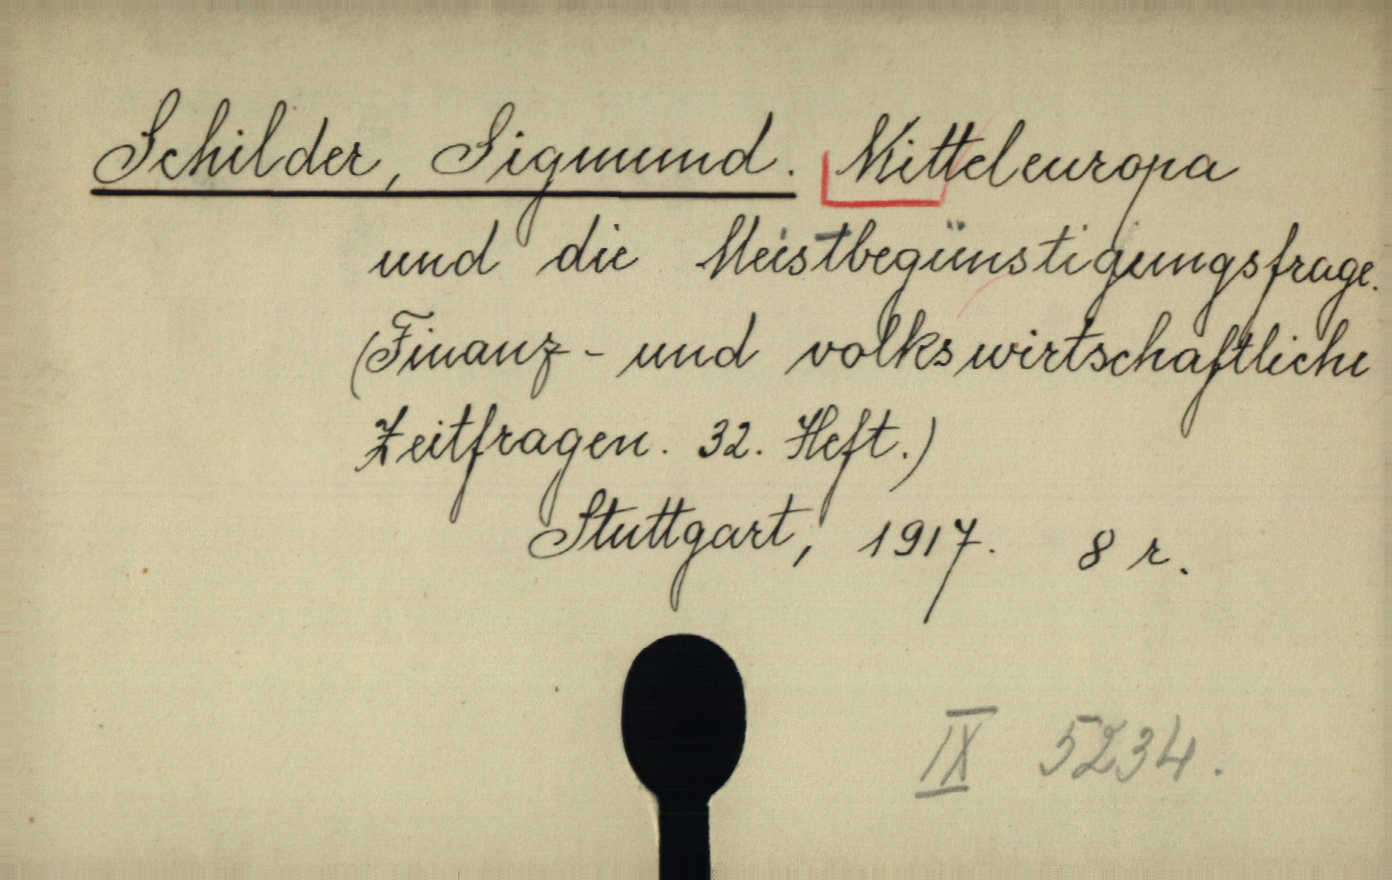 Schilder, Sigmund. Mitteleuropa
und die Meistbegünstigungsfrage.
(Finanz- und volkswirtschaftliche
Zeitfragen. 32. Heft.)
Stuttgart, 1917. 8 r.
IX 5234.